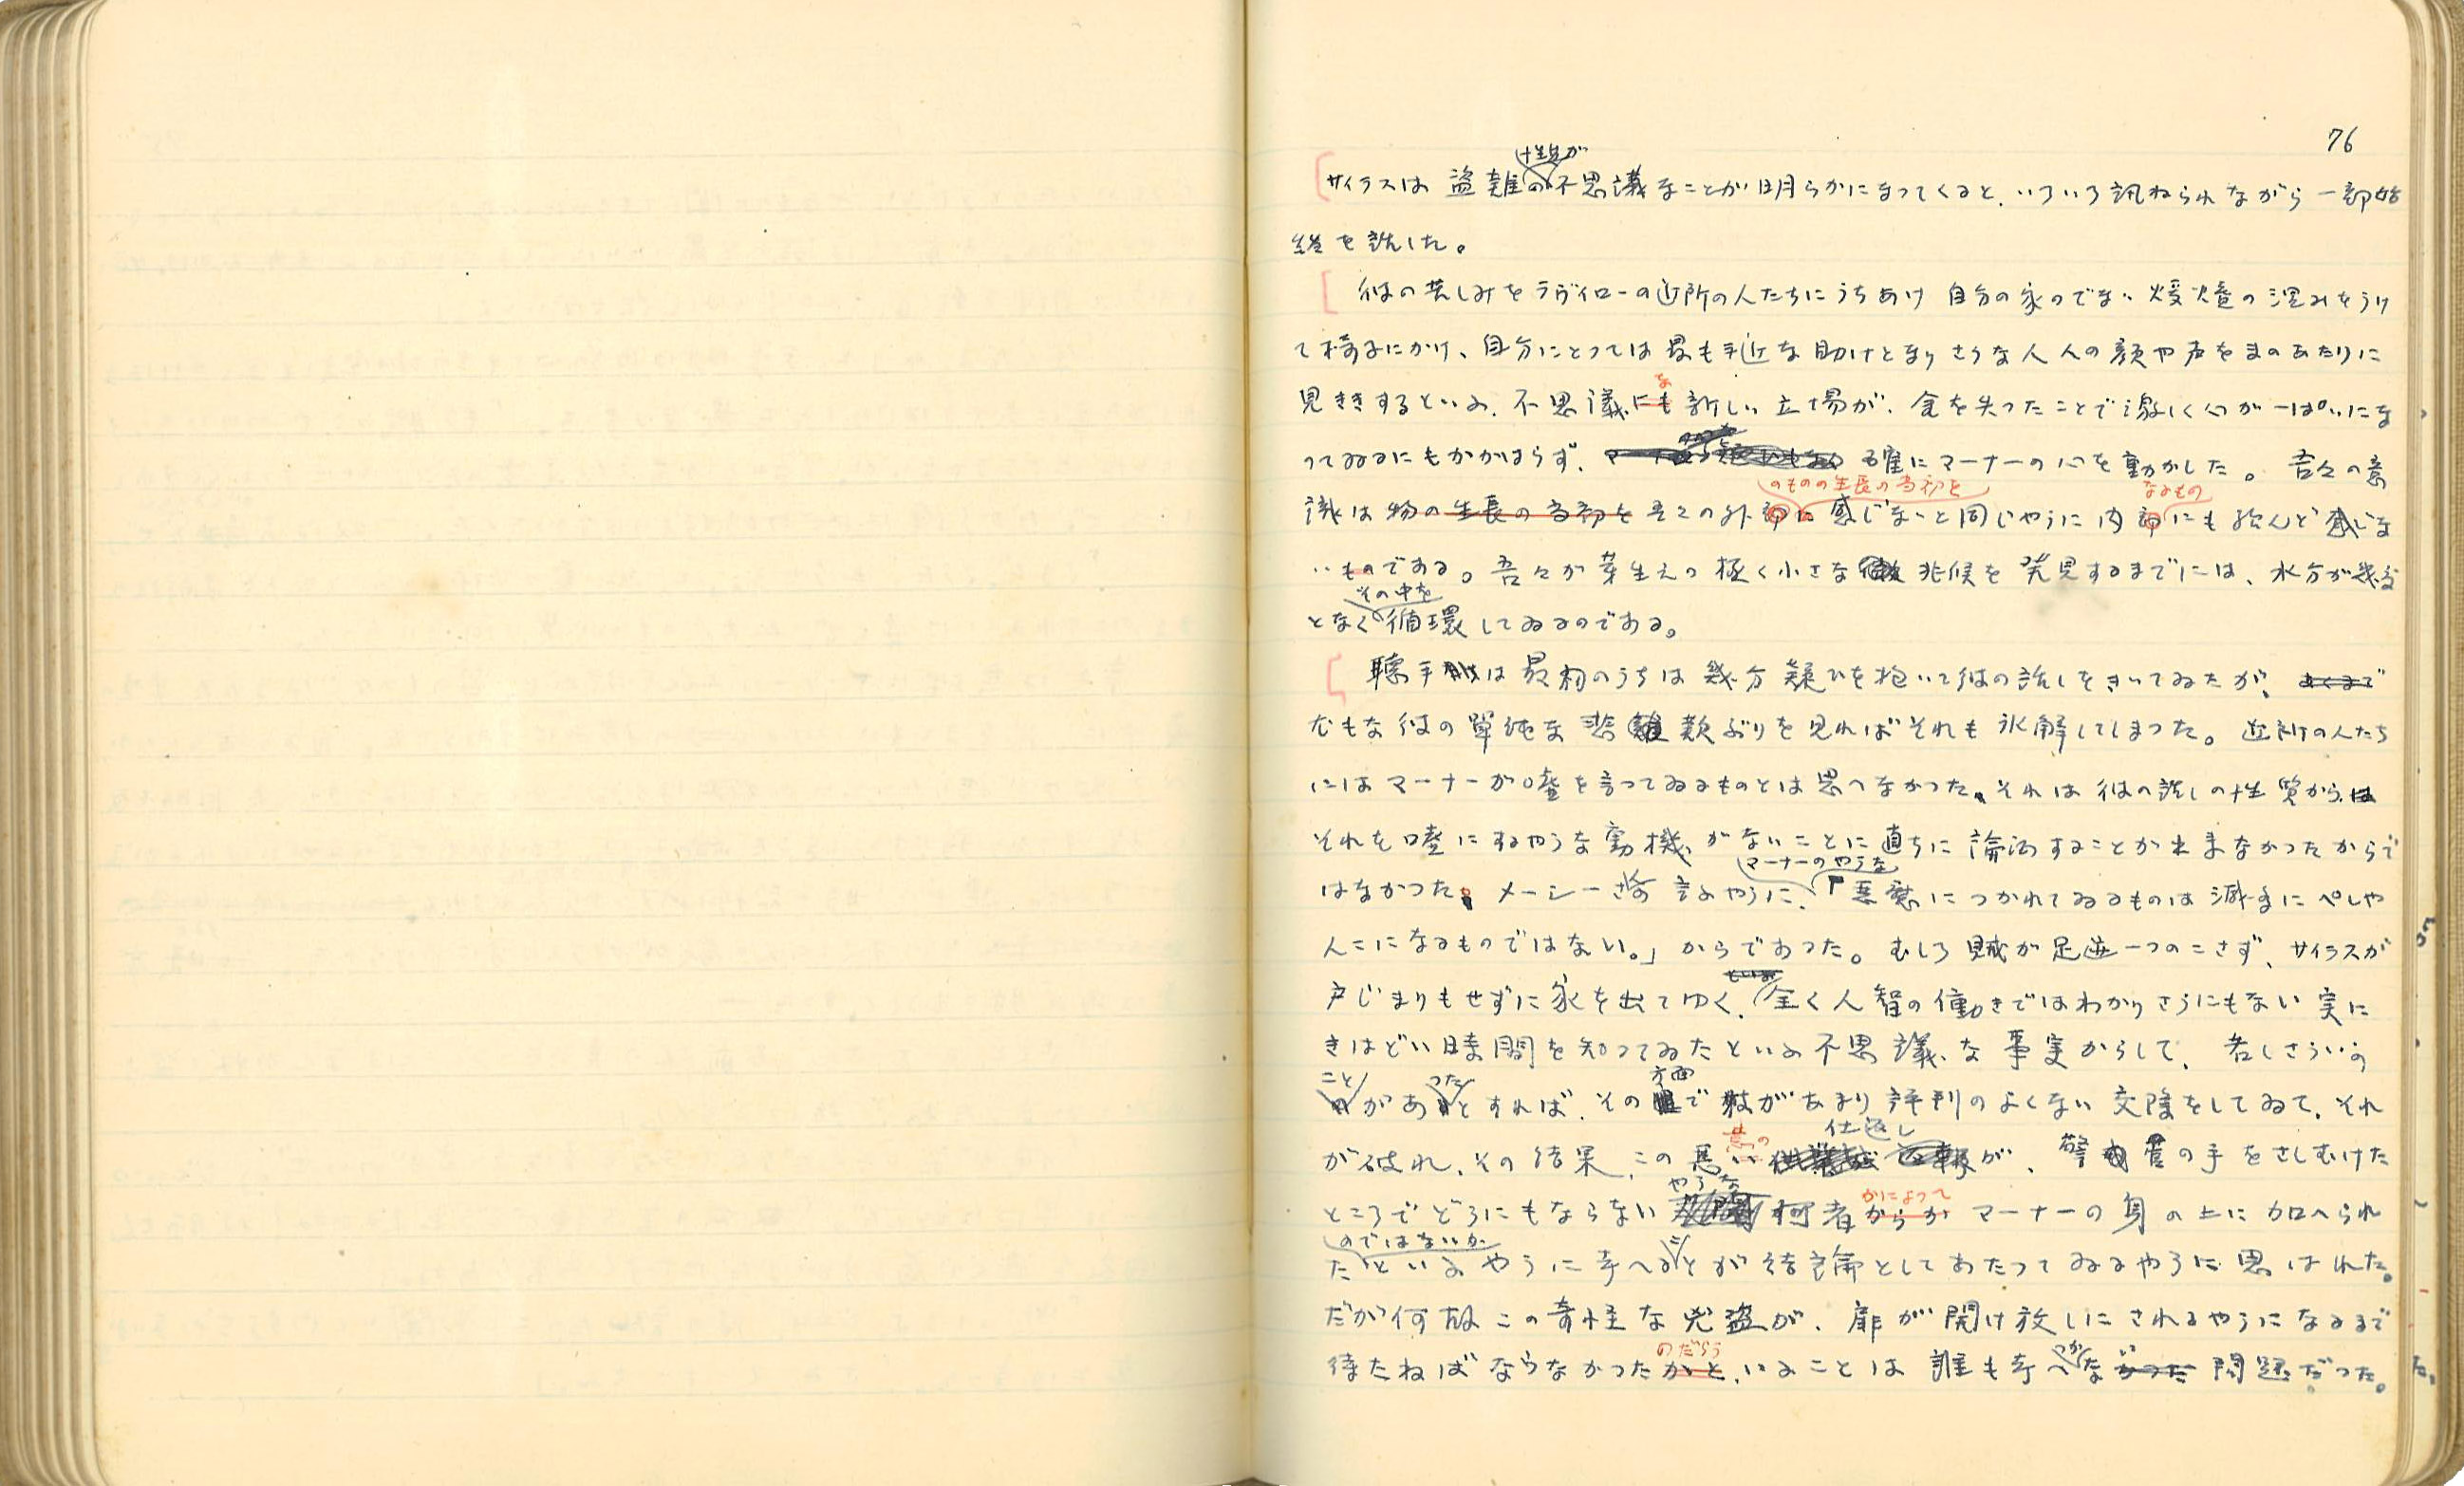 76
性質が
サイラスは 盗難の不思議なことが明らかになつてくると、いろいろ訊ねられながら一部始
終を話した。
彼の苦しみをラヴイローの近所の人たちにうちあけ 自分の家のでない 煖爐の温みをうけ
て椅子にかけ、自分にとつては最も手近な助けとなりさうな人人の顔や声をまのあたりに
な
見ききするといふ、不思議にも新しい立場が、金を失つたことで激しく心が一ぱいにな
つてゐるにもかかはらず、 確にマーナーの心を動かした。 吾々の意
のものの生長の当初を なるもの
識は物の生長の当初を 吾々の外部に感じないと同じやうに内部にも殆んど感じな
いものである。吾々が芽生えの極く小さな 兆候を発見するまでには、水分が幾度
その中を
となく循環してゐるのである。
聴手は最初のうちは幾分疑ひを抱いて彼の話しをきいてゐたが、あくまで
尤もな彼の單純な悲歎ぶりを見ればそれも氷解してしまつた。近所の人たち
にはマーナーが嘘を言つてゐるものとは思へなかつた、それは彼の話しの性質から、は
それを嘘にするやうな動機がないことに直ちに論及することが出来なかつたからで
マーナーのやうな
はなかつた。メーシーさんの言ふやうに、「悪魔につかれてゐるものは滅多にぺしや
んこになるものではない。」からであつた。むしろ賊が足迹一つのこさず、サイラスが
戸じまりもせずに家を出てゆく、全く人智の働きではわかりさうにもない実に
きはどい時間を知つてゐたといふ不思議な事実からして、若しさういふ
こと つた 方面
がありとすれば、その で彼があまり評判のよくない交際をしてゐて、それ
昔の 仕返し
が破れ、その結果、この悪い が、警官の手をさしむけた
やうな かによつて
ところでどうにもならない 何者からか マーナーの身の上に加へられ
のではないか こ
たといふやうに考へるとが結論としてあたつてゐるやうに思はれた。
だが何故この奇怪な兇盗が、扉が開け放しにされるやうになるまで
のだらう つか い
待たねばならなかつたかと、いふことは誰も考へなかつた 問題だつた。